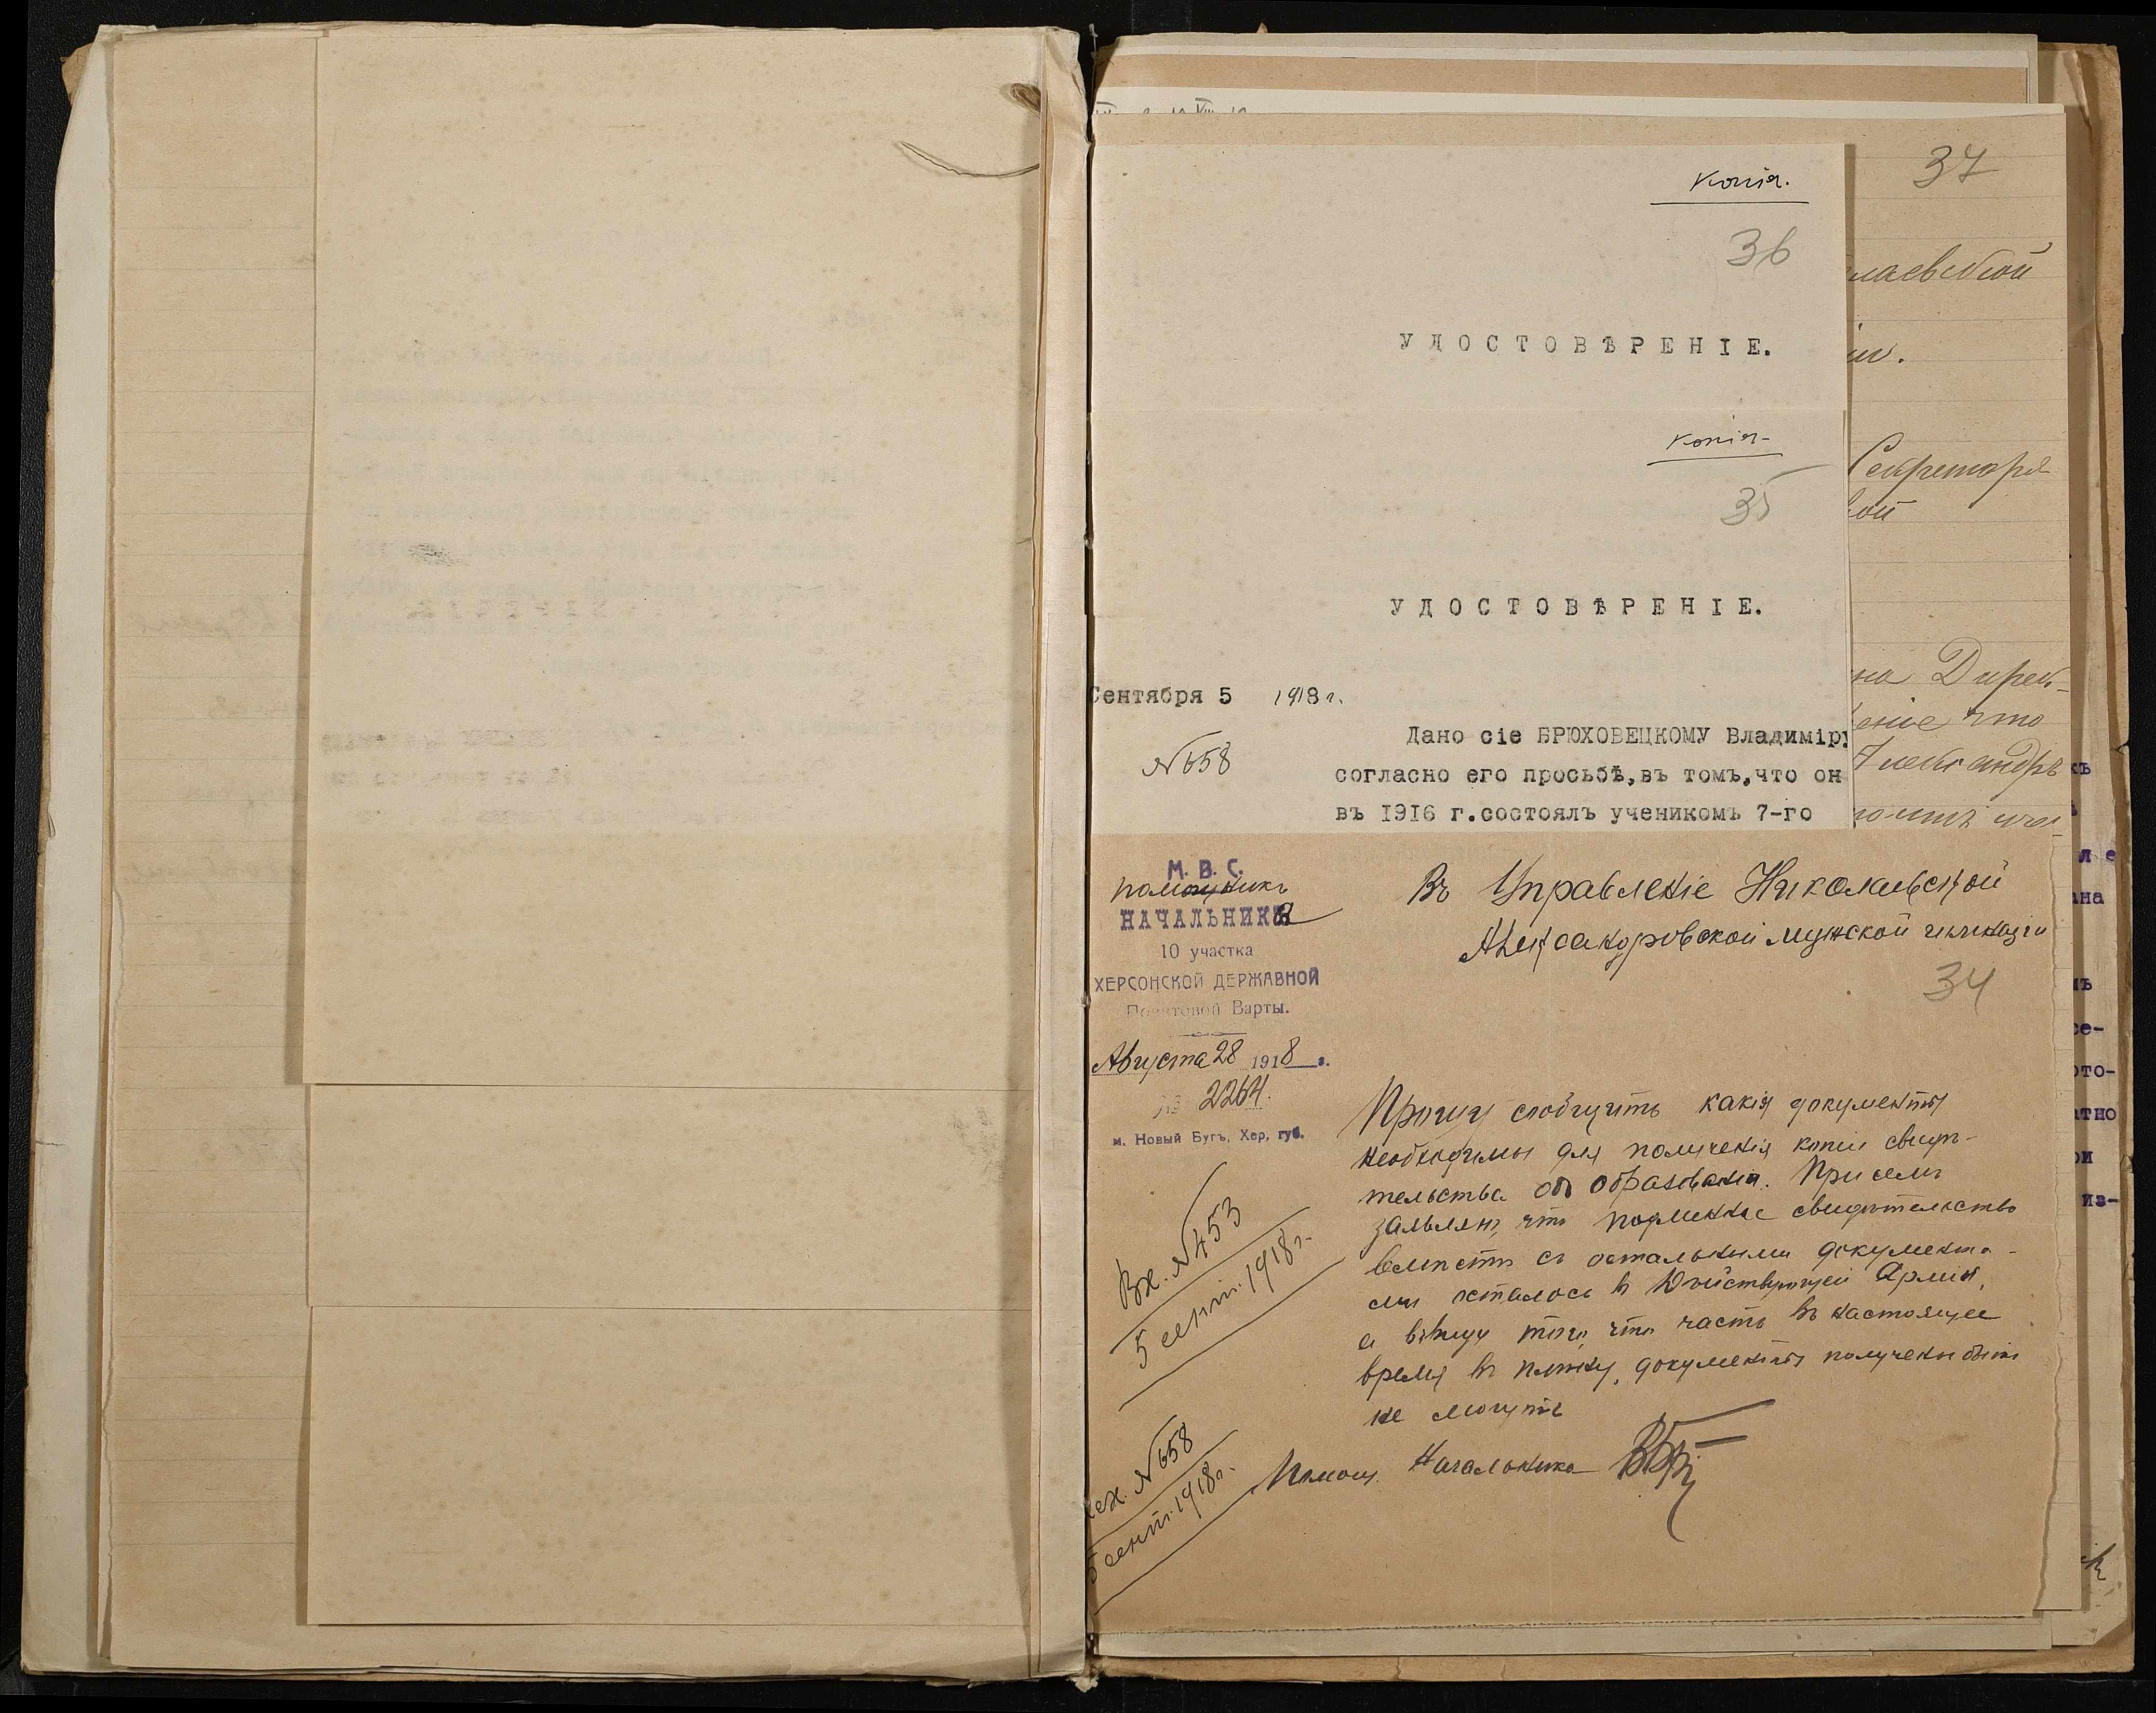 Копія.
36
УДОСТОВѢРЕНІЕ.
Копія
35
УДОСТОВѢРЕНІЕ.
Сентября 5 1918 г.
№ 658
Дано сіе БРЮХОВЕЦКОМУ Владиміру
согласно его просьбѣ, въ томъ, что он
въ 1916 г. состоялъ ученикомъ 7-го
37
лаевской
Секретаря
вой
на Дирек-
еніе что
Александръ
М. В. С.
помощникъ
НАЧАЛЬНИКА
10 участка
ХЕРСОНСКОЙ ДЕРЖАВНОЙ
Повѣтовой Варты.
Августа 28 1918 г.
№ 2264.
м. Новый Бугъ, Хер. губ.
Вх. № 453
5 сент. 1918 г.
исх. № 658
5 сент. 1918 г.
Въ Управленіе Николаевской
Александровской мужской гимназіи
34
Прошу сообщить какія документы
необходимы для полученія копіи свидѣ-
тельства объ образованіи. При семъ
заявляю, что подлинное свидѣтельство
вмѣстѣ съ остальными докумекта-
ми осталось въ Дѣйствующей Арміи,
а ввиду того, что часть въ настоящее
время въ плѣну, документы получены быть
не могутъ
Помощ. Начальника
къ
ле
ана
се-
ото-
атно
ри
из-